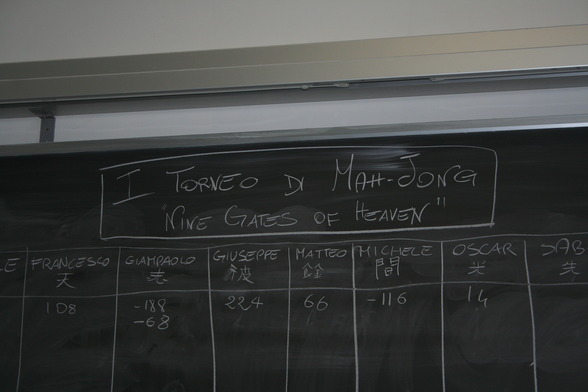 I TORNEO DI MAH-JONG
"NINE GATES OF HEAVEN"
LE FRANCESCO GIAMPAOLO GIUSEPPE MATTEO MICHELE OSCAR SAB
天
108 -188 224 66 -116 14
-68